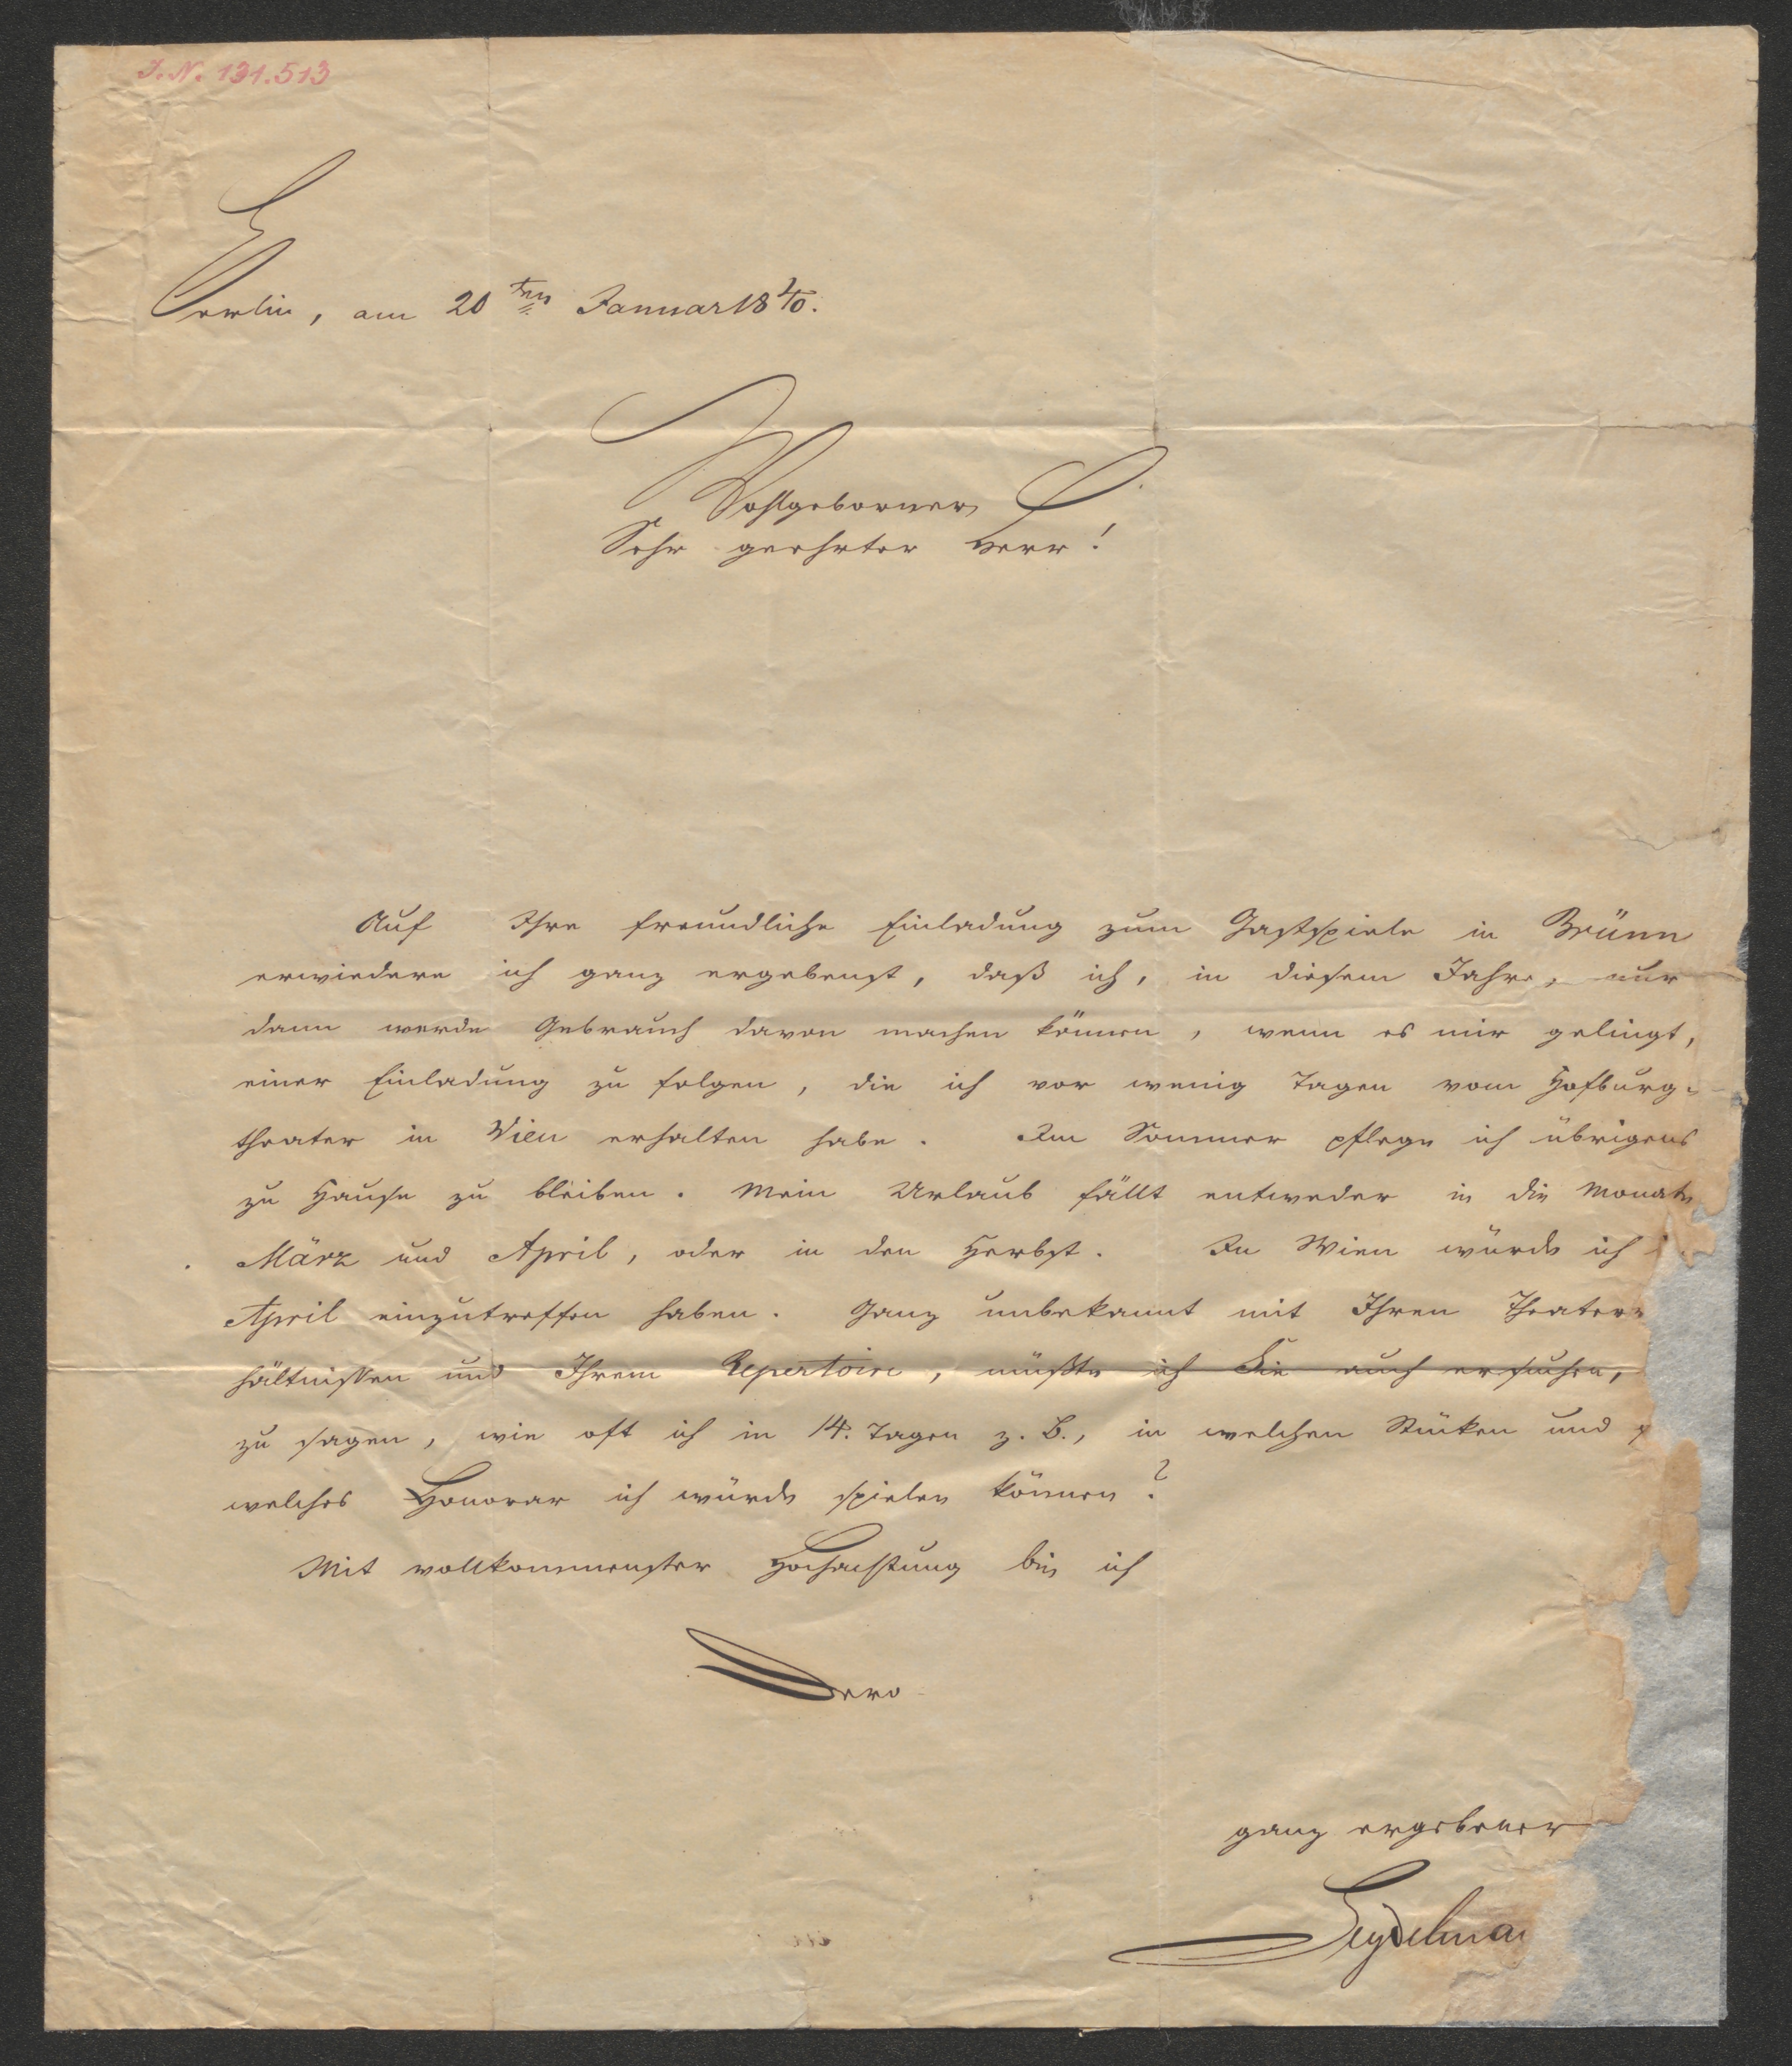 I. N. 131.513
Berlin, am 20ten Januar 1840.
Wohlgeborner
Sehr geehrter Herr!
Auf Ihre freundliche Einladung zum Gastspiele in Brünn
erwiedere ich ganz ergebenst, daß ich, in diesem Jahre, nur
dann werde Gebrauch davon machen können, wenn es mir gelingt,
einer Einladung zu folgen, die ich vor wenig Tagen vom Hofburg-
theater in Wien erhalten habe. Im Sommer pflege ich übrigens
zu Hause zu bleiben. Mein Urlaub fällt entweder in die Monate
März und April, oder in den Herbst. In Wien würde ich
April einzutreffen haben. Ganz unbekannt mit Ihren Theater
hältnissen und Ihrem Repertoire, müßte ich Sie auch ersuchen,
zu sagen, wie oft ich in 14. Tagen z. B., in welchen Stücken und
welches Honorar ich würde spielen können?
Mit vollkommenster Hochachtung bin ich
Dero
ganz ergebener
Seydelman